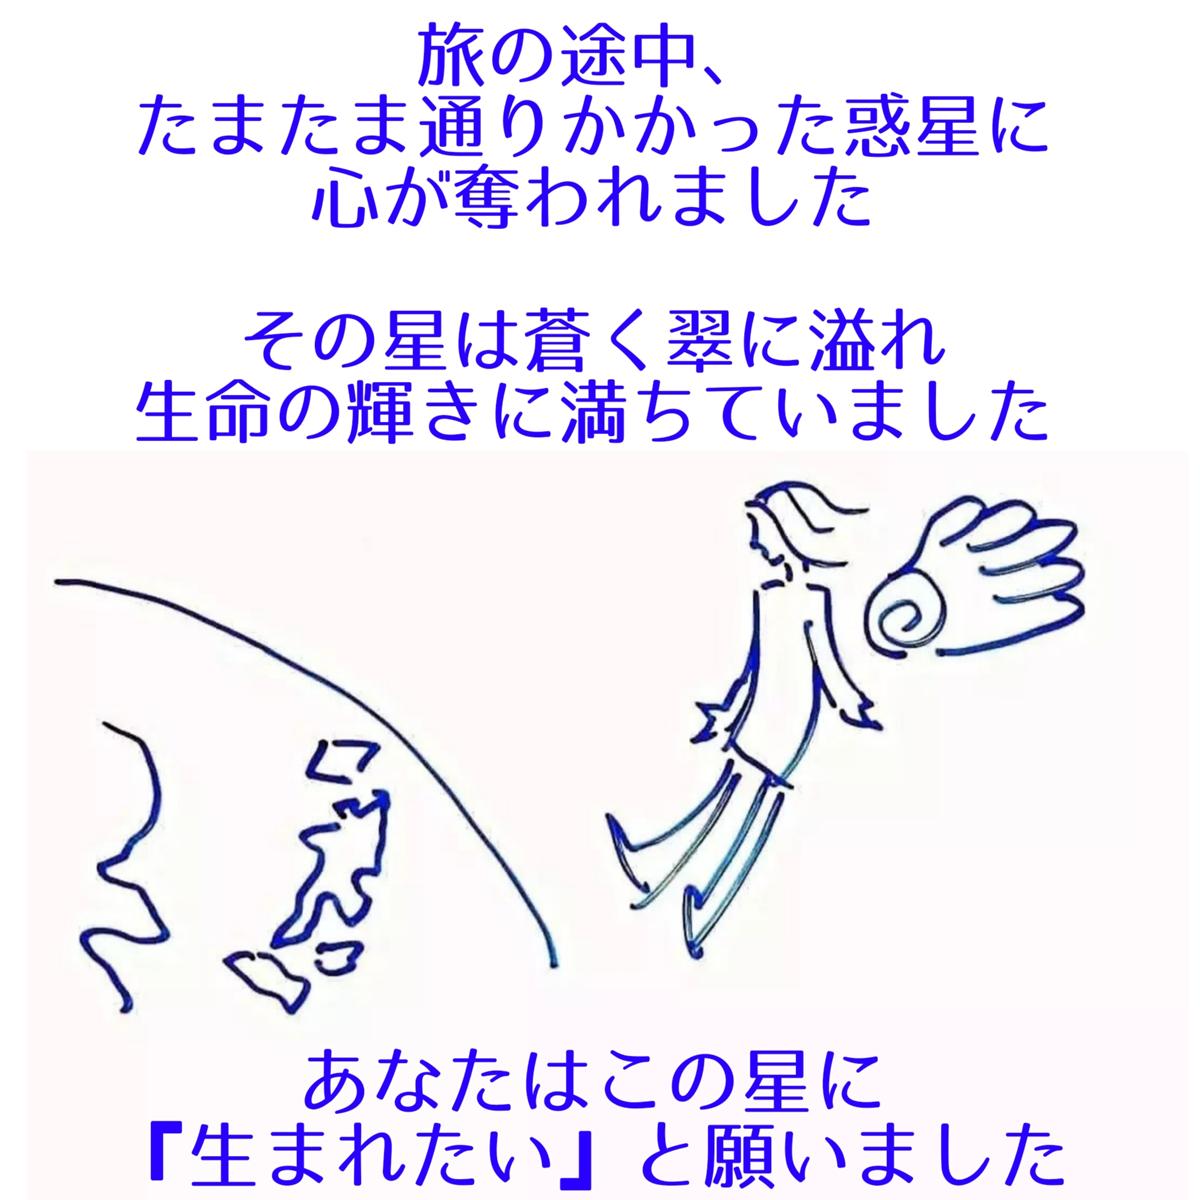 旅の途中、
たまたま通りかかった惑星に
心が奪われました
その星は蒼く翠に溢れ
生命の輝きに満ちていました
あなたはこの星に
『生まれたい』と願いました